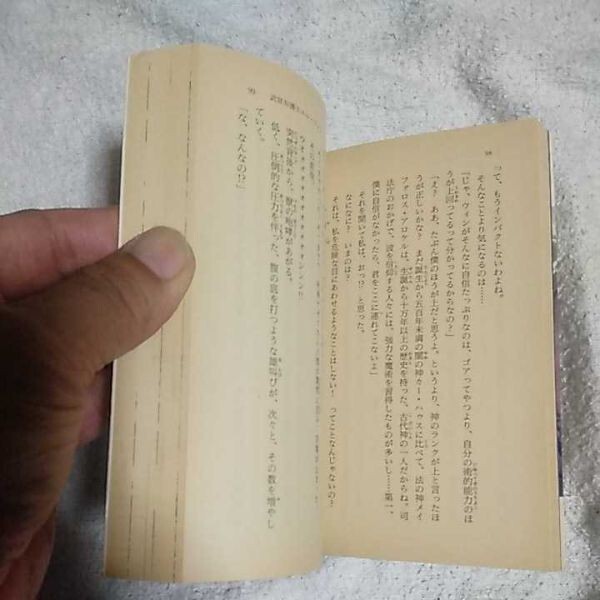 98
って、もうインパクトないわよね。
そんなことより気になるのは……
「じゃ、ウィンがそんなに自信たっぷりなのは、ゴアってやつより、自分の術的能力のほ
うが上回ってるって分かってるからなの?」
「え? ああ、たぶん僕のほうが上だと思うよ。というより、神のランクが上と言ったほ
うが正しいかな? まだ誕生から五百年未満の闇の神カー・ハウスに比べて、法の神メイ
ファロス・アロケルは、生誕から十万年以上の歴史を持った、古代神の一人だからね。司
法庁のおかげで、彼を信仰する人々には、強力な魔術を習得したものが多いし……第一、
僕に自信がなかったら、君をここに連れてこないよ」
それを聞いて私は、おっ!? と思った。
なになに? いまのは?
それは、私を危険な目にあわせるようなことはしない! ってことなんじゃないの?
99
その刹那。
突然背後から、獣の咆哮があがる。
低く、圧倒的な圧力を伴った、腹の底を打つような雄叫びが、次々と、その数を増やし
ていく。
「な、なんなの!?」